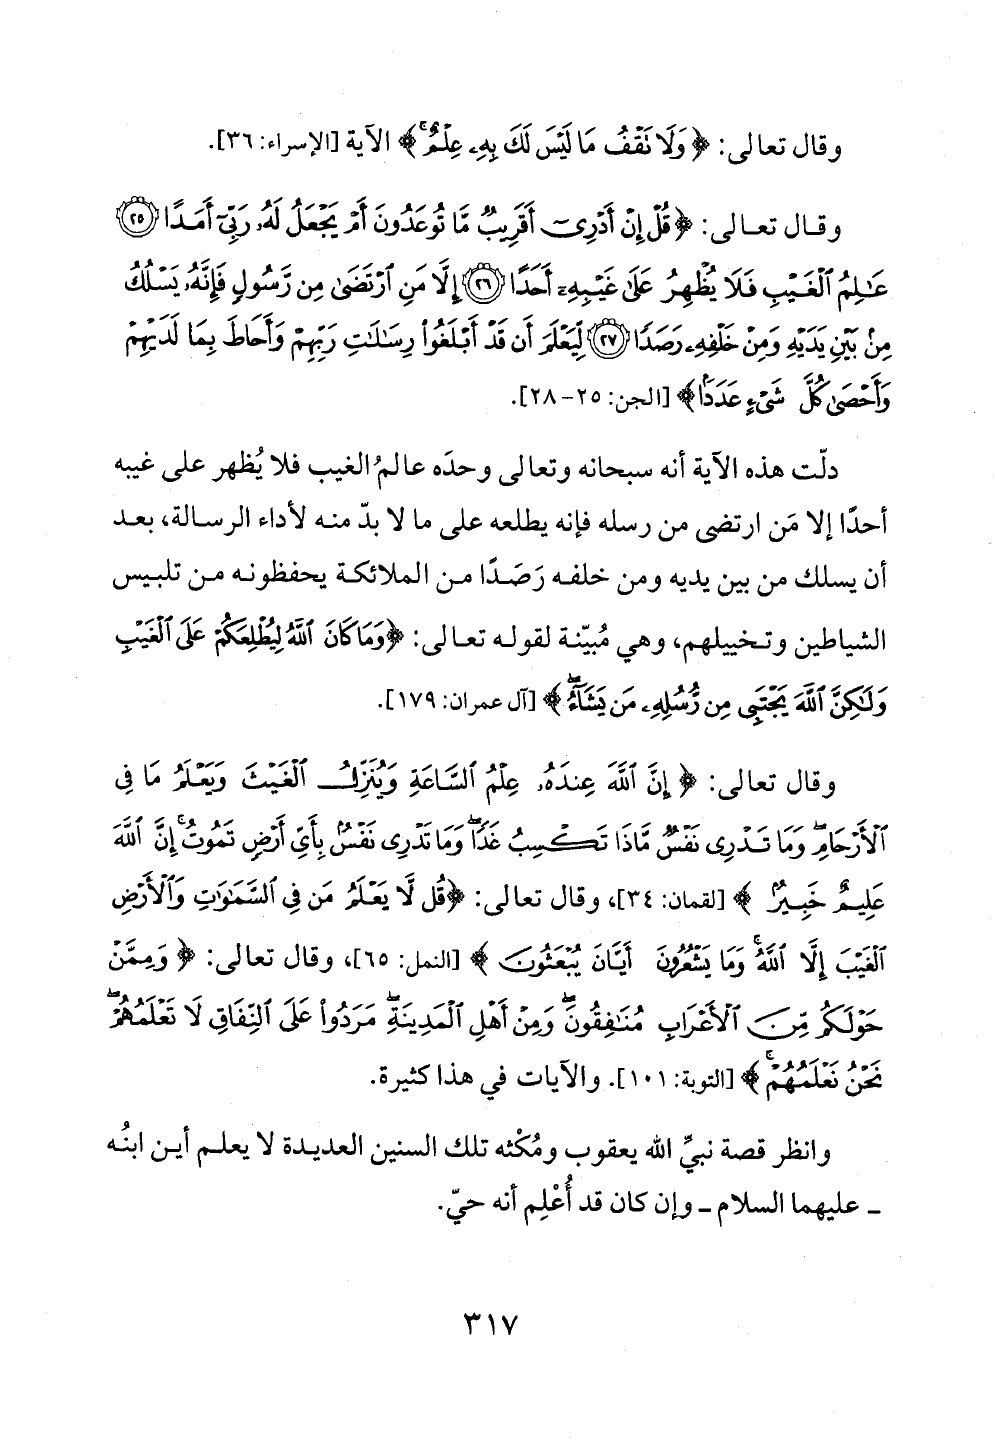 وقال تعالى: ﴿وَلَا نَقْفُ مَا لَيْسَ لَكَ بِهِۦ عِلْمٌ ۚ﴾ الآية [الإسراء: ٣٦].
وقـال تعـالى: ﴿قُلْ إِنْ أَدْرِىٓ أَقَرِيبٌ مَّا تُوعَدُونَ أَمْ يَجْعَلُ لَهُۥ رَبِّىٓ أَمَدًا ٢٥
عَـٰلِمُ ٱلْغَيْبِ فَلَا يُظْهِرُ عَلَىٰ غَيْبِهِۦٓ أَحَدًا ٢٦ إِلَّا مَنِ ٱرْتَضَىٰ مِن رَّسُولٍ فَإِنَّهُۥ يَسْلُكُ
مِنۢ بَيْنِ يَدَيْهِ وَمِنْ خَلْفِهِۦ رَصَدًا ٢٧ لِّيَعْلَمَ أَن قَدْ أَبْلَغُوا۟ رِسَـٰلَـٰتِ رَبِّهِمْ وَأَحَاطَ بِمَا لَدَيْهِمْ
وَأَحْصَىٰ كُلَّ شَىْءٍ عَدَدَۢا﴾ [الجن: ٢٥-٢٨].
دلّت هذه الآية أنه سبحانه وتعالى وحدَه عالمُ الغيب فلا يُظهر على غيبه
أحدًا إلا مَن ارتضى من رسله فإنه يطلعه على ما لا بدّ منه لأداء الرسالة، بعـد
أن يسلك من بين يديه ومن خلفـه رَصَـدًا مـن الملائكـة يحفظونـه مـن تلبـيس
الشياطين وتـخييلهم، وهي مُبيّنة لقولـه تعـالى: ﴿وَمَا كَانَ ٱللَّهُ لِيُطْلِعَكُمْ عَلَى ٱلْغَيْبِ
وَلَـٰكِنَّ ٱللَّهَ يَجْتَبِى مِن رُّسُلِهِۦ مَن يَشَآءُ ۖ﴾ [آل عمران: ١٧٩].
وقال تعالى: ﴿إِنَّ ٱللَّهَ عِندَهُۥ عِلْمُ ٱلسَّاعَةِ وَيُنَزِّلُ ٱلْغَيْثَ وَيَعْلَمُ مَا فِى
ٱلْأَرْحَامِ ۖ وَمَا تَـدْرِى نَفْسٌ مَّاذَا تَكْسِبُ غَدًا ۖ وَمَا تَدْرِى نَفْسٌۢ بِأَىِّ أَرْضٍ تَمُوتُ ۚ إِنَّ ٱللَّهَ
عَلِيمٌ خَبِيرٌۢ﴾ [لقمان: ٣٤]، وقال تعالى: ﴿قُل لَّا يَعْلَمُ مَن فِى ٱلسَّمَـٰوَٰتِ وَٱلْأَرْضِ
ٱلْغَيْبَ إِلَّا ٱللَّهُ ۚ وَمَا يَشْعُرُونَ أَيَّانَ يُبْعَثُونَ﴾ [النمل: ٦٥]، وقال تعالى: ﴿وَمِمَّنْ
حَوْلَكُم مِّنَ ٱلْأَعْرَابِ مُنَـٰفِقُونَ ۖ وَمِنْ أَهْلِ ٱلْمَدِينَةِ ۖ مَرَدُوا۟ عَلَى ٱلنِّفَاقِ لَا تَعْلَمُهُمْ ۖ
نَحْنُ نَعْلَمُهُمْ ۚ﴾ [التوبة: ١٠١]. والآيات في هذا كثيرة.
وانظر قصة نبيِّ الله يعقوب ومُكْثه تلك السنين العديدة لا يعلـم أيـن ابنُـه
ـ عليهما السلام ـ وإن كان قد أُعْلِم أنه حيّ.
٣١٧